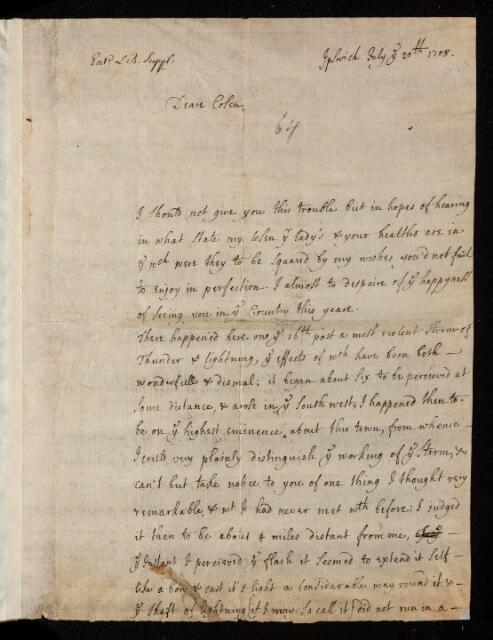 Entd L.B. Suppl.
Ipswich July ye 20th 1708.
Deare Cosen,
64
I should not give you this trouble but in hopes of hearing
in what state my Cosen yr Lady's & your healths are in
ye wch were they to be squared by my wishes you'd not fail
to enjoy in perfection. I almost to despaire of ye happyness
of seeing you in ye Country this yeare.
There happened here on ye 16th past a most violent storm of
Thunder & lightning, ye effects of wch have been both –
wonderfull & dismal; it began about six to be percieved at
some distance, & arose in ye South west, I happened then to
be on ye highest eminence about this town, from whence –
I could very plainly distinguish ye working of ye storm, &
can't but take notice to you of one thing I thought very
remarkable, & wt I had never met wth before; I judged
it then to be about 4 miles distant from me,
ye instant I percieved ye flash it seemed to extend it self –
like a bow & cast it's light a considarable way round it &
ye shaft of lightning if I may so call it did not run in a –